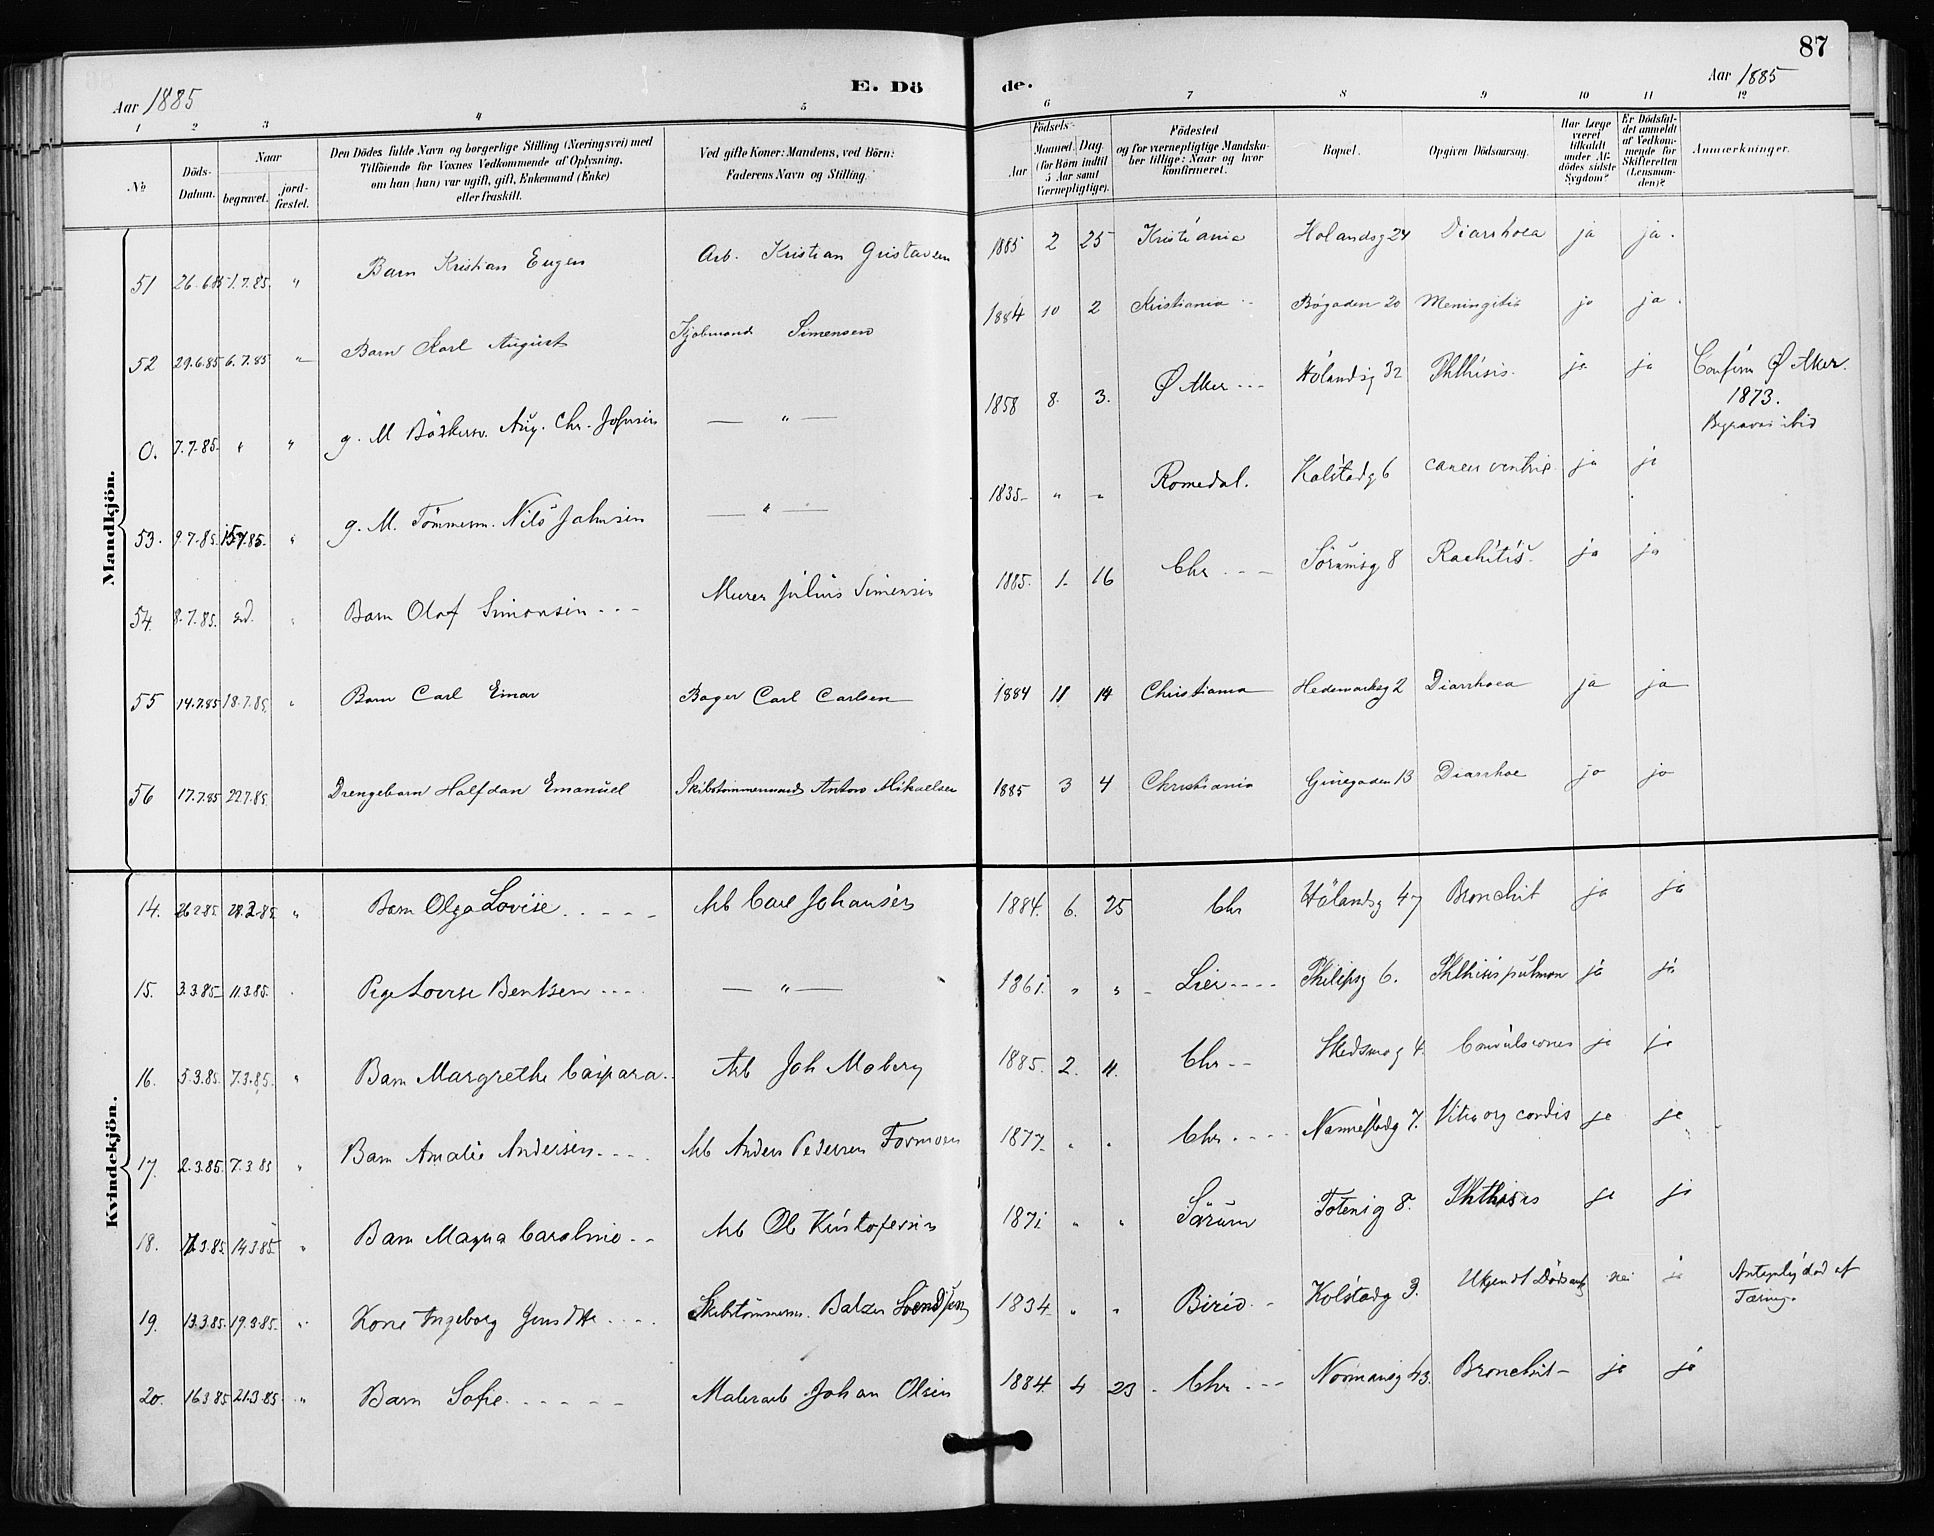 87
Aar 1885 E. Dö de. Aar 1885
1 2 3 4 5 6 7 8 9 10 11 12
No
Döds-Datum.
Naar
begravet.
jord-fæstet.
Den Dödes fulde Navn og borgerlige Stilling (Næringsvei) med
Tilföiende for Voxnes Vedkommende af Oplysning,
om han (hun) var ugift, gift, Enkemand (Enke)
eller fraskilt.
Ved gifte Koner: Mandens, ved Börn:
Faderens Navn og Stilling.
Födsels-
Aar
Maaned. Dag.
(for Börn indtil
5 Aar samt
Værnepligtige).
Födested
og for værnepligtige Mandska-
ber tillige: Naar og hvor
konfirmeret.
Bopæl.
Opgiven Dödsaarsag.
Har Læge
været
tilkaldt
under Af-
dödes sidste
Sygdom?
Er Dödsfal-
det anmeldt
af Vedkom-
mende for
Skifteretten
(Lensman-
den)?
Anmærkninger.
Mandkjön.
51 26.6.85 1.7.85. " Barn Kristian Eugen Arb. Kristian Gustavsen 1885 2 25 Kristiania Holandsg 24 Diarrhoea ja ja.
52 29.6.85 6.7.85 " Barn Karl August Simensen 1884 10 2 Kristiania Bøgaden 20 Meningitis ja ja.
0. 7.7.85. " " g. M Aug. Chr. Johnsen — " — 1858 8. 3. Ø Aker --- Hölandsg 32 Phthisis. ja ja Confirm Ø Aker.
1873.
ibid
53. 9.7.85. 15.7.85. " g. M. Tömmerm. Nils Johnsen — " — 1835 " " Romedal. Kolstadg 6 cancer ventric. ja ja
54. 8.7.85. " Barn Olaf Simonsen --- Murer Julius Simensen 1885. 1. 16 Chr --- Sörumsg 8 Rachitis. ja ja
55 14.7.85 18.7.85. " Barn Carl Einar Bager Carl Carlsen 1884 11 14 Christiania Hedemarksg 2 Diarrhoea ja ja
56 17.7.85 22.7.85. Drengebarn Halfdan Emanuel Skibstömmermand Anton Mikaelsen 1885 3 4 Christiania 13 Diarrhoe ja ja
Kvindekjön.
14. 26.2.85. 28.2.85. " Barn Olga Lovise ----- Arb Carl Johansen 1884. 6. 25 Chr Hölandsg 47 Bronchit ja ja
15. 3.3.85 11.3.85. Pige Lovise Bentsen ---- — " — 1861. " " Lier ---- Philipsg 6. Phthisis pulmon ja ja
16. 5.3.85. 7.3.85. " Barn Margrethe Caspara Arb Joh Moberg 1885. 2. 11. Chr -- Skedsmog 4. Convulsiones ja ja
17. 2.3.85. 7.3 85 " Barn Amalie Andersen ---- Arb Anders Pedersen Formoen 1877 " " Chr ---- Nannestadg 7. Vitia org cordis ja ja
18. 3.85. 14.3.85. " Barn Magna Caroline -- Arb Ole Kristofersen 1871 " " Sörum Totensg 8. Phthisis ja ja
19. 13.3.85. 19.3.85. " Kone Ingeborg ---- Skibstömmerm. Balzer Svendsen 1834 " " Birid Kolstadg 3. Ukjendt Dödsaars nei ja Antagelig död af
Tæring.
20. 16.3 85 21.3.85 " Barn Sofie ------ Malerarb Johan Olsen 1884. 4 23 Chr --- Normansg 43. Bronchit ja ja